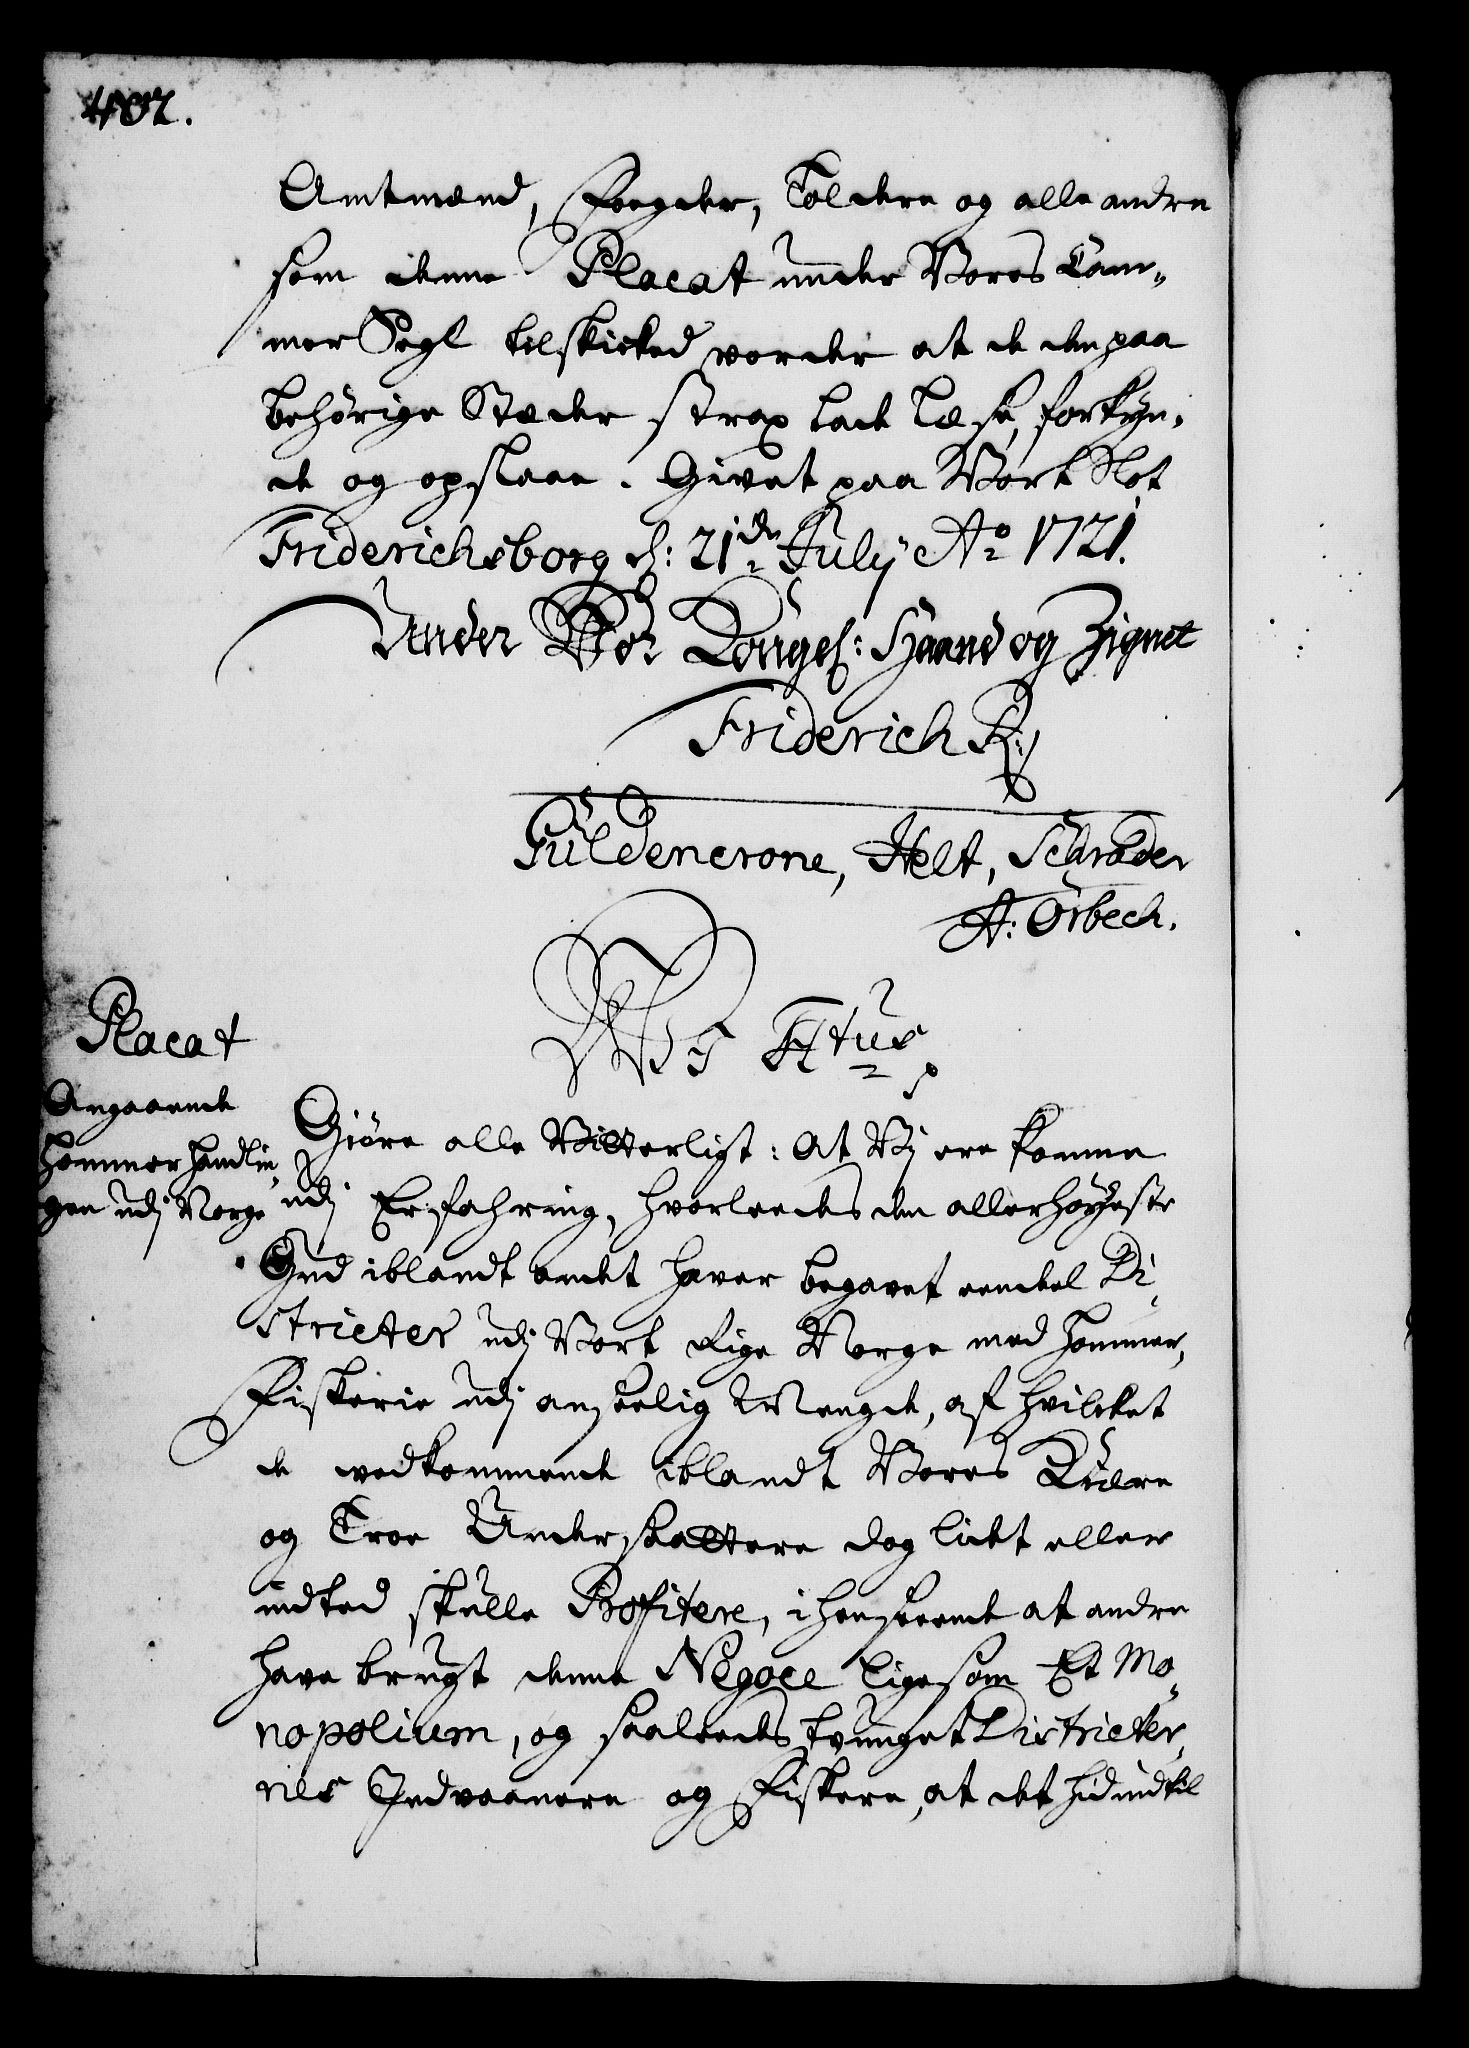 402.
Amtmænd, Foegder, Toldere og alle andre
som denne Placat under Vores Cam-
mer Segl tilskicked vorder at de den paa
behörige Stæder strax lade læse, forkyn-
de og opslaae. Givet paa Vort Slot
Friderichsborg d: 21de July Ao 1721.
Under Vor Kongel: Haand og Zignet
Friderich R:
Güldencrone, Helt, Schrader
A: Örbech.
Wi F 4tus
Placat
Angaaende
Hommerhandlin-
gen udj Norge
Giöre alle Vitterligt: At Vj ere komne
udj Erfahring, hvorleedes den allerhöyeste
Gud iblandt andet haver begavet eendel Di-
stricter udj Vort Rige Norge med Hommer,
Fiskerie udj anseelig Mengde, af hvilcket
de vedkommende iblandt Vores Kiære
og Troe Undersaattere dog lidet eller
indted skulle Profitere, i henseende at andre
have brugt denne Negoce ligesom Et Mo-
nopolium, og saaleedes tvunget Districter-
nes Indvaanere og Fiskere, at det hidindtil